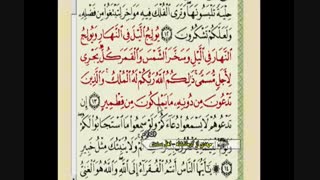 حِلْيَةً تَلْبَسُونَهَا وَتَرَى الْفُلْكَ فِيهِ مَوَاخِرَ لِتَبْتَغُوا مِنْ فَضْلِهِ
وَلَعَلَّكُمْ تَشْكُرُونَ ١٢ يُولِجُ اللَّيْلَ فِي النَّهَارِ وَيُولِجُ
النَّهَارَ فِي اللَّيْلِ وَسَخَّرَ الشَّمْسَ وَالْقَمَرَ كُلٌّ يَجْرِي
لِأَجَلٍ مُسَمًّى ذَلِكُمُ اللَّهُ رَبُّكُمْ لَهُ الْمُلْكُ وَالَّذِينَ
تَدْعُونَ مِنْ دُونِهِ مَا يَمْلِكُونَ مِنْ قِطْمِيرٍ ١٣
تَدْعُوهُمْ لَا يَسْمَعُوا دُعَاءَكُمْ وَلَوْ سَمِعُوا مَا اسْتَجَابُوا لَكُمْ
وَلَا يُنَبِّئُكَ مِثْلُ خَبِيرٍ
١٤ يَا أَيُّهَا النَّاسُ أَنْتُمُ الْفُقَرَاءُ إِلَى اللَّهِ وَاللَّهُ هُوَ الْغَنِيُّ